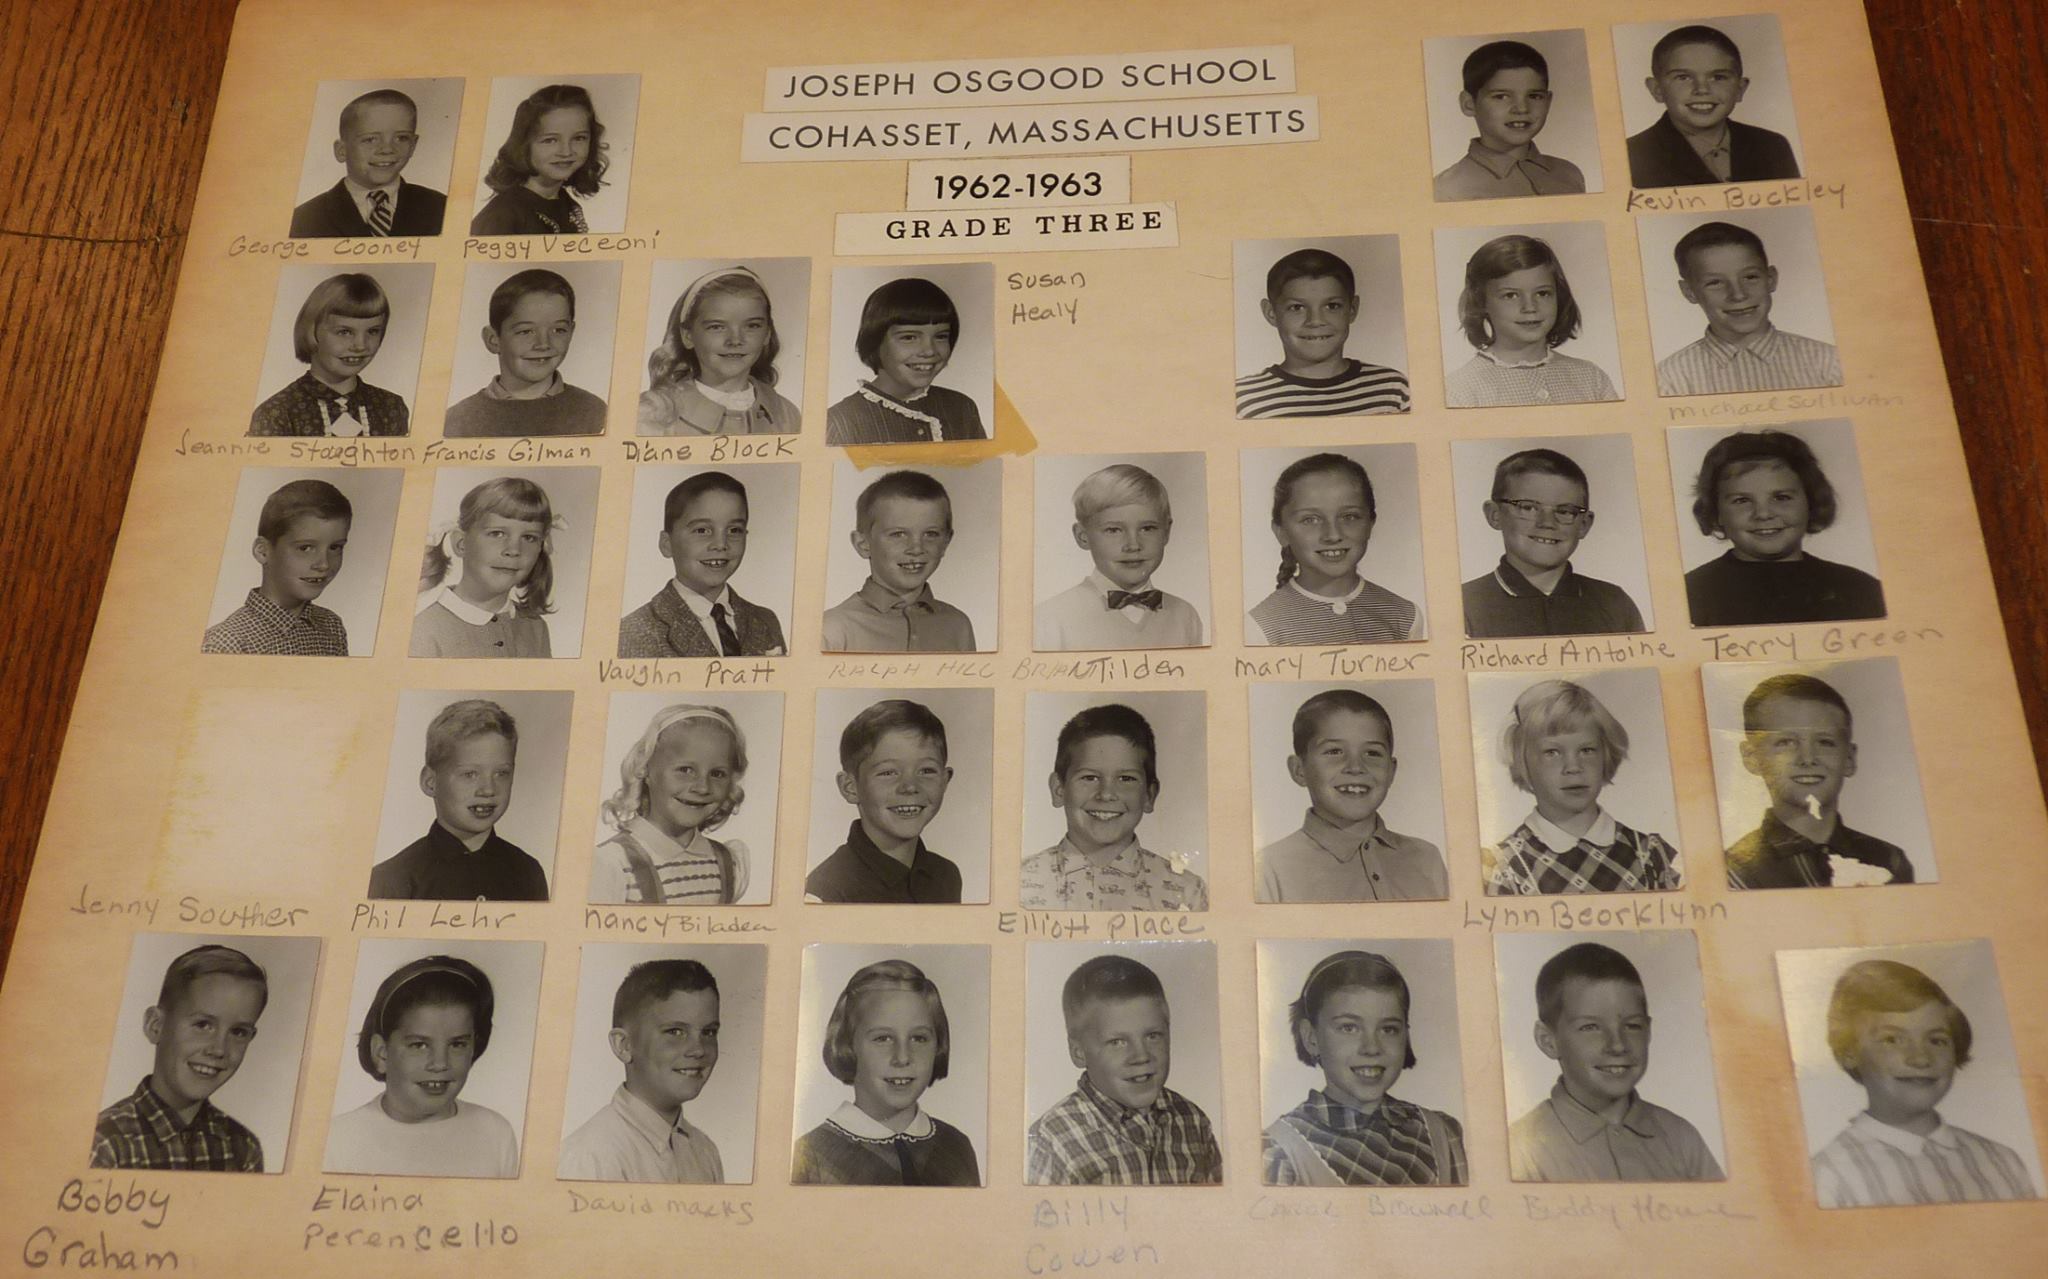 JOSEPH OSGOOD SCHOOL
COHASSET, MASSACHUSETTS
1962-1963
GRADE THREE
Kevin Buckley
George Cooney Peggy Veceoni
Susan
Healy
Michael Sullivan
Jeannie Stoughton Francis Gilman Diane Block
Vaughn Pratt RALPH HILL BRIAN Tilden Mary Turner Richard Antoine Terry Green
Jenny Souther Phil Lehr Nancy Biladeau Elliott Place Lynn Beorklynn
Bobby
Graham
Elaina
Perencello
David Marks
Billy
Cowen
Carol Brownell
Buddy Howe